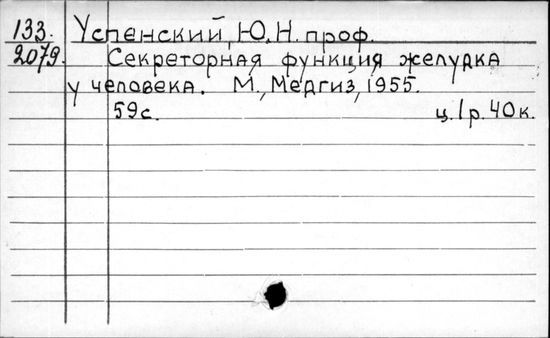 133. Успенский, Ю.Н. проф.
2079. Секреторная функция желудка
у человека. М., Медгиз, 1955.
59с. ц. 1р. 40к.